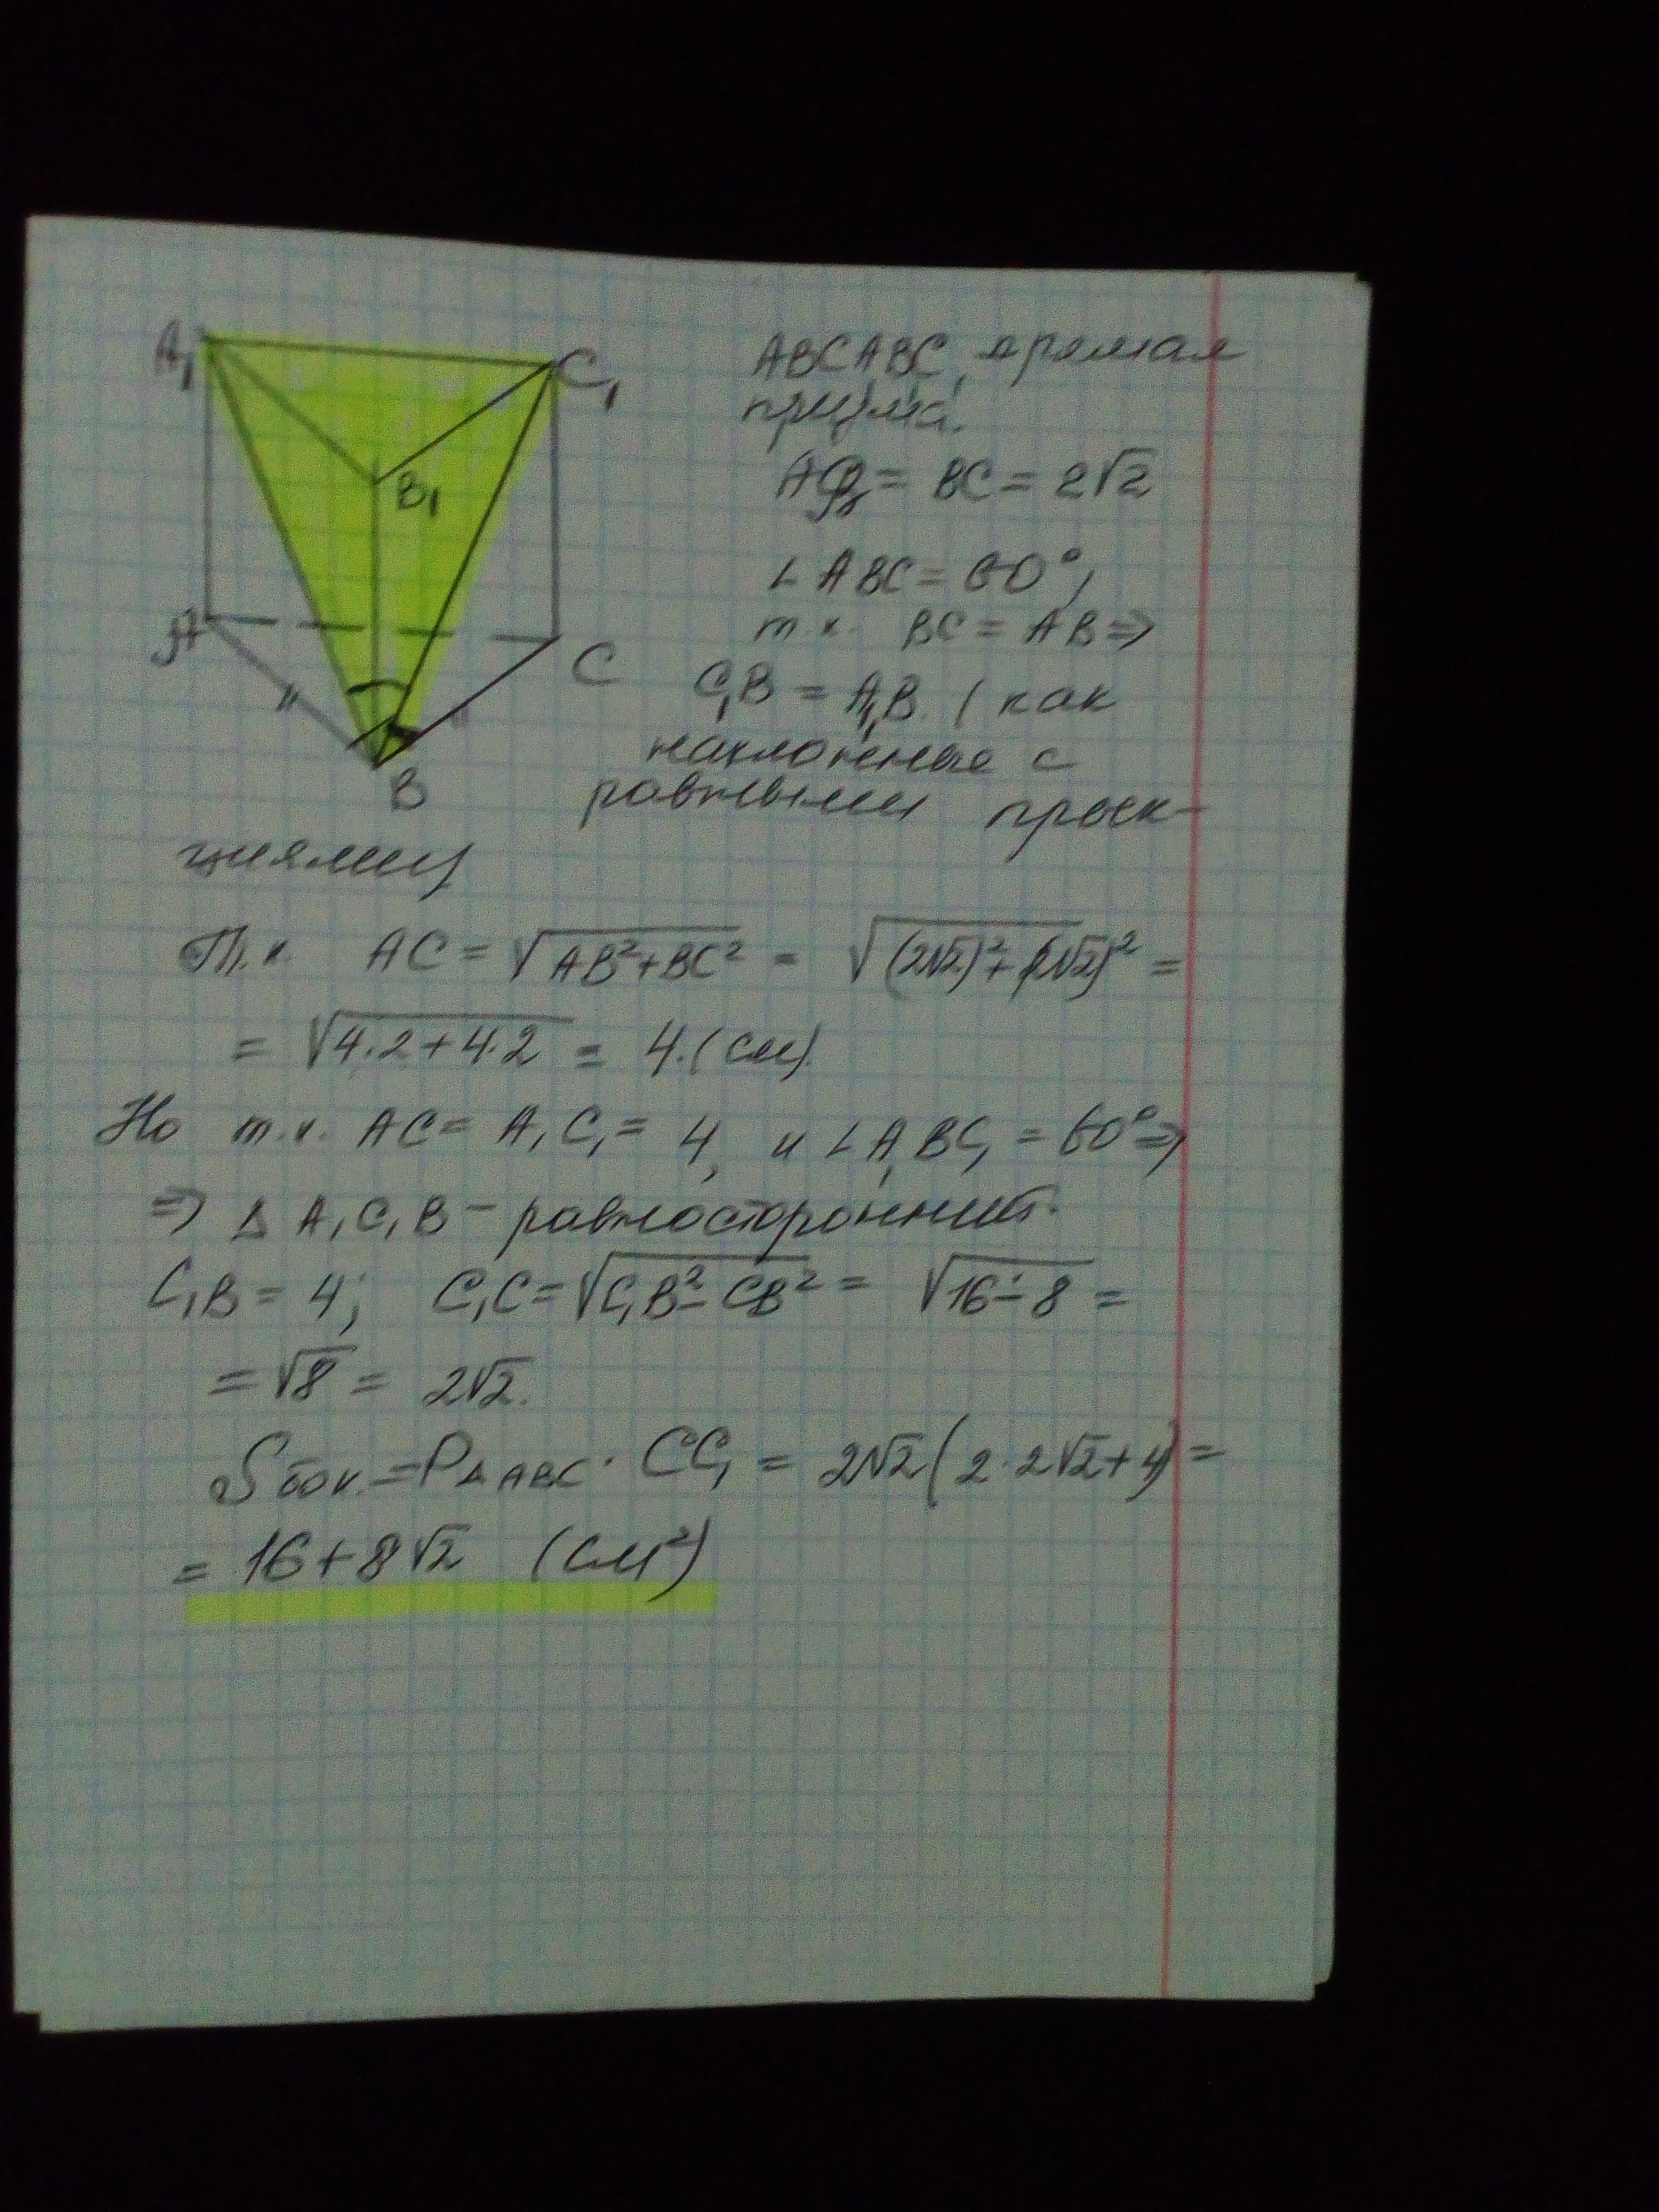 A₁
C₁
B₁
A
C
B
ABCA₁B₁C₁ прямая
призма.
AB = BC = 2√2
∠ABC = 60°,
т.к. BC = AB ⇒
C₁B = A₁B. (как
наклонные с
равными проек-
циями)
Т.к. AC = √(AB² + BC²) = √((2√2)² + (2√2)²) =
= √(4·2 + 4·2) = 4.(см).
Но т.к. AC = A₁C₁ = 4, и ∠A₁BC₁ = 60° ⇒
⇒ Δ A₁C₁B – равносторонний.
C₁B = 4; C₁C = √(C₁B² – CB²) = √(16 – 8) =
= √8 = 2√2.
Sбок. = P Δ ABC · CC₁ = 2√2(2·2√2 + 4) =
= 16 + 8√2 (см²)